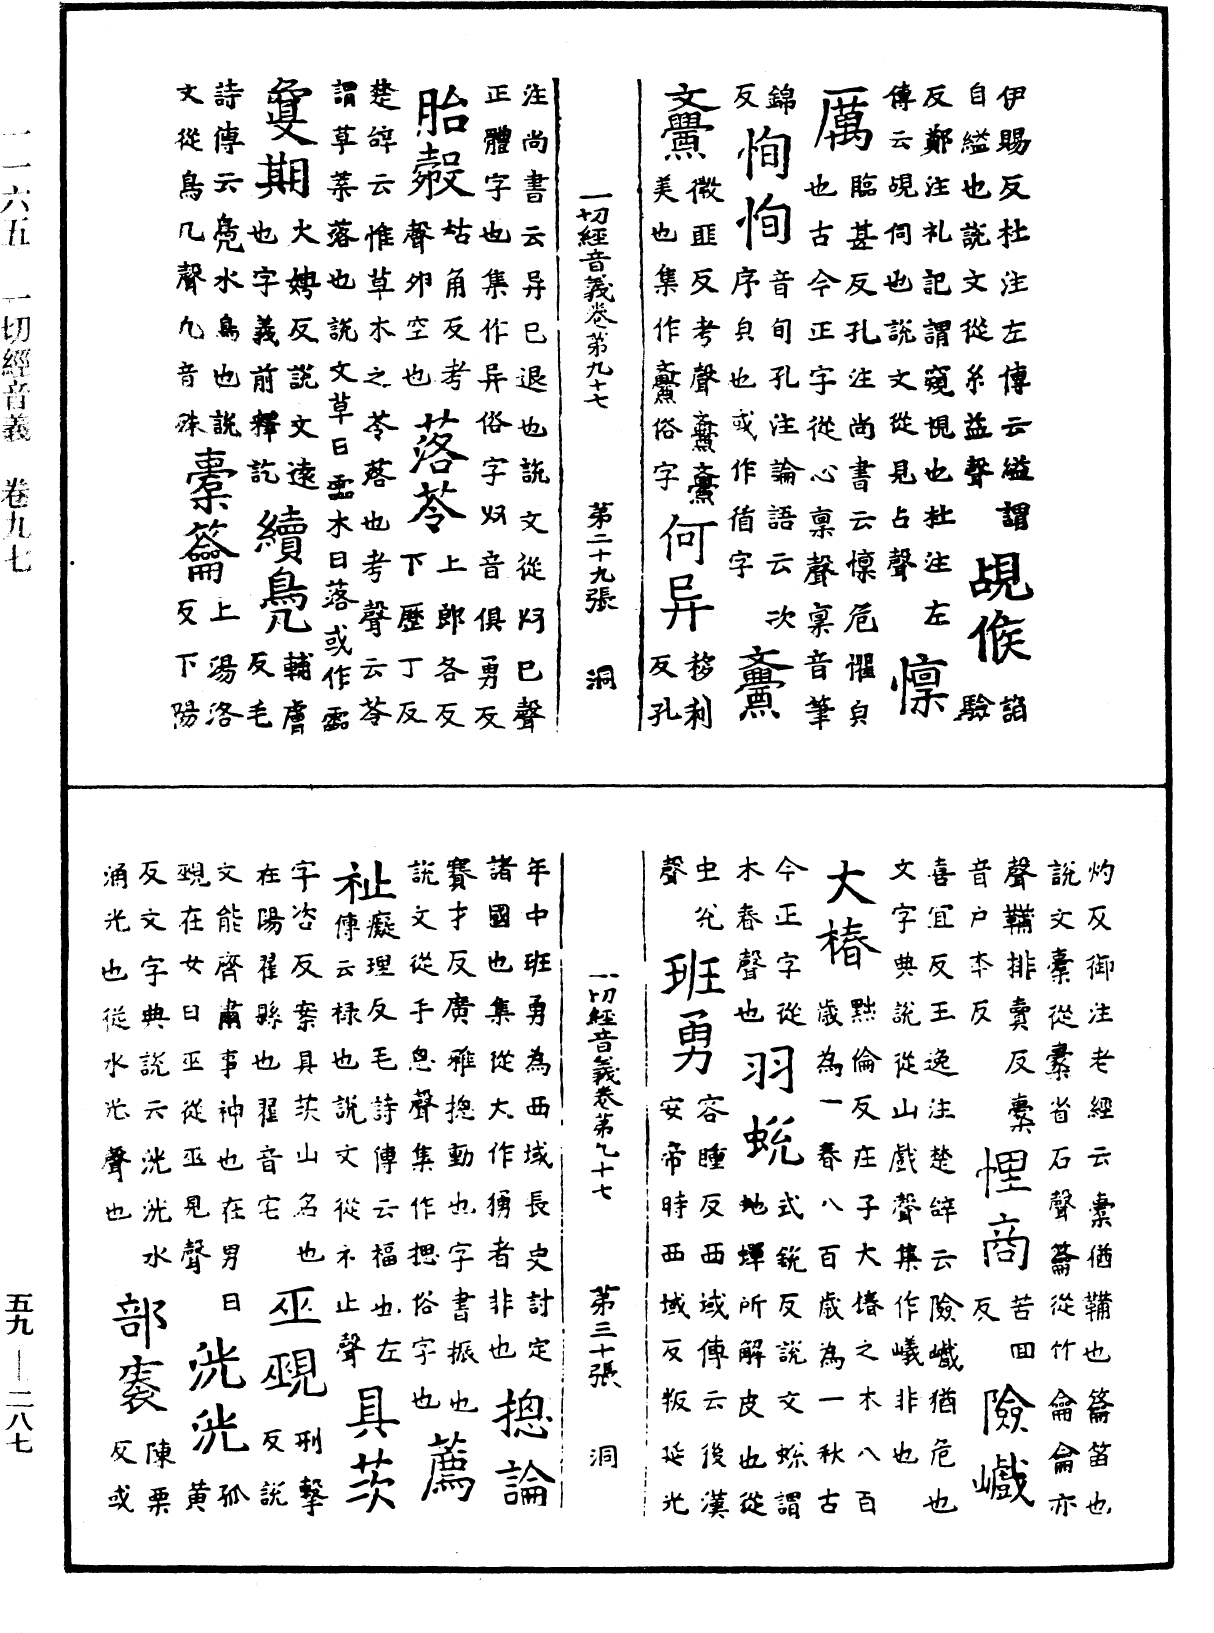 伊賜反杜注左傳云縊謂
自縊也說文從糸益聲
覘候
諂
驗
反鄭注禮記謂窺視也杜注左
傳云覘伺也說文從見占聲
懍
厲
臨甚反孔注尚書云懍危懼皃
也古今正字從心稟聲稟音筆
錦
反
恂恂
音旬孔注論語云次
序皃也或作㣙字
亹
亹
微匪反考聲亹亹
美也集作亹俗字
何异
移利
反孔
一切經音義卷第九十七 第二十九張 洞
注尚書云异已退也說文從廾巳聲
正體字也集作异俗字廾音俱勇反
胎㲉
姑角反考
聲卵空也
落苓
上郎各反
下歷丁反
楚辭云惟草木之苓落也考聲云苓
謂草葉落也說文草曰苓木曰落或作零
敻期
火娉反說文遠
也字義前釋訖
續鳧
輔膚
反毛
詩傳云鳧水鳥也說
文從鳥几聲几音殊
橐籥
上湯洛
反下陽
灼反御注老經云橐猶韛也籥笛也
說文橐從㯻省石聲籥從竹龠龠亦
聲韛排賣反㯻
音戶本反
悝商
苦回
反
險巇
喜宜反王逸注楚辭云險巇猶危也
文字典說從山戲聲集作㠖非也
大椿
黜倫反莊子大椿之木八百
歲為一春八百歲為一秋古
今正字從
木春聲也
羽蛻
式銳反說文蛻謂
虵蟬所解皮也從
虫兊
聲
班勇
容踵反西域傳云後漢
安帝時西域反叛延光
一切經音義卷第九十七 第三十張 洞
年中班勇為西域長史討定
諸國也集從犬作㺎者非也
摠論
賽才反廣雅摠動也字書振也
說文從手怱聲集作揔俗字也
薦
祉
癡理反毛詩傳云福也左
傳云祿也說文從示止聲
具茨
字咨反案具茨山名也
在陽翟縣也翟音宅
巫覡
刑擊
反說
文能齊肅事神也在男曰
覡在女曰巫從巫見聲
洸洸
孤
黃
反文字典說云洸洸水
涌光也從水光聲也
部袠
陳栗
反或
一一六五 一切經音義 卷九七
五九—二八七